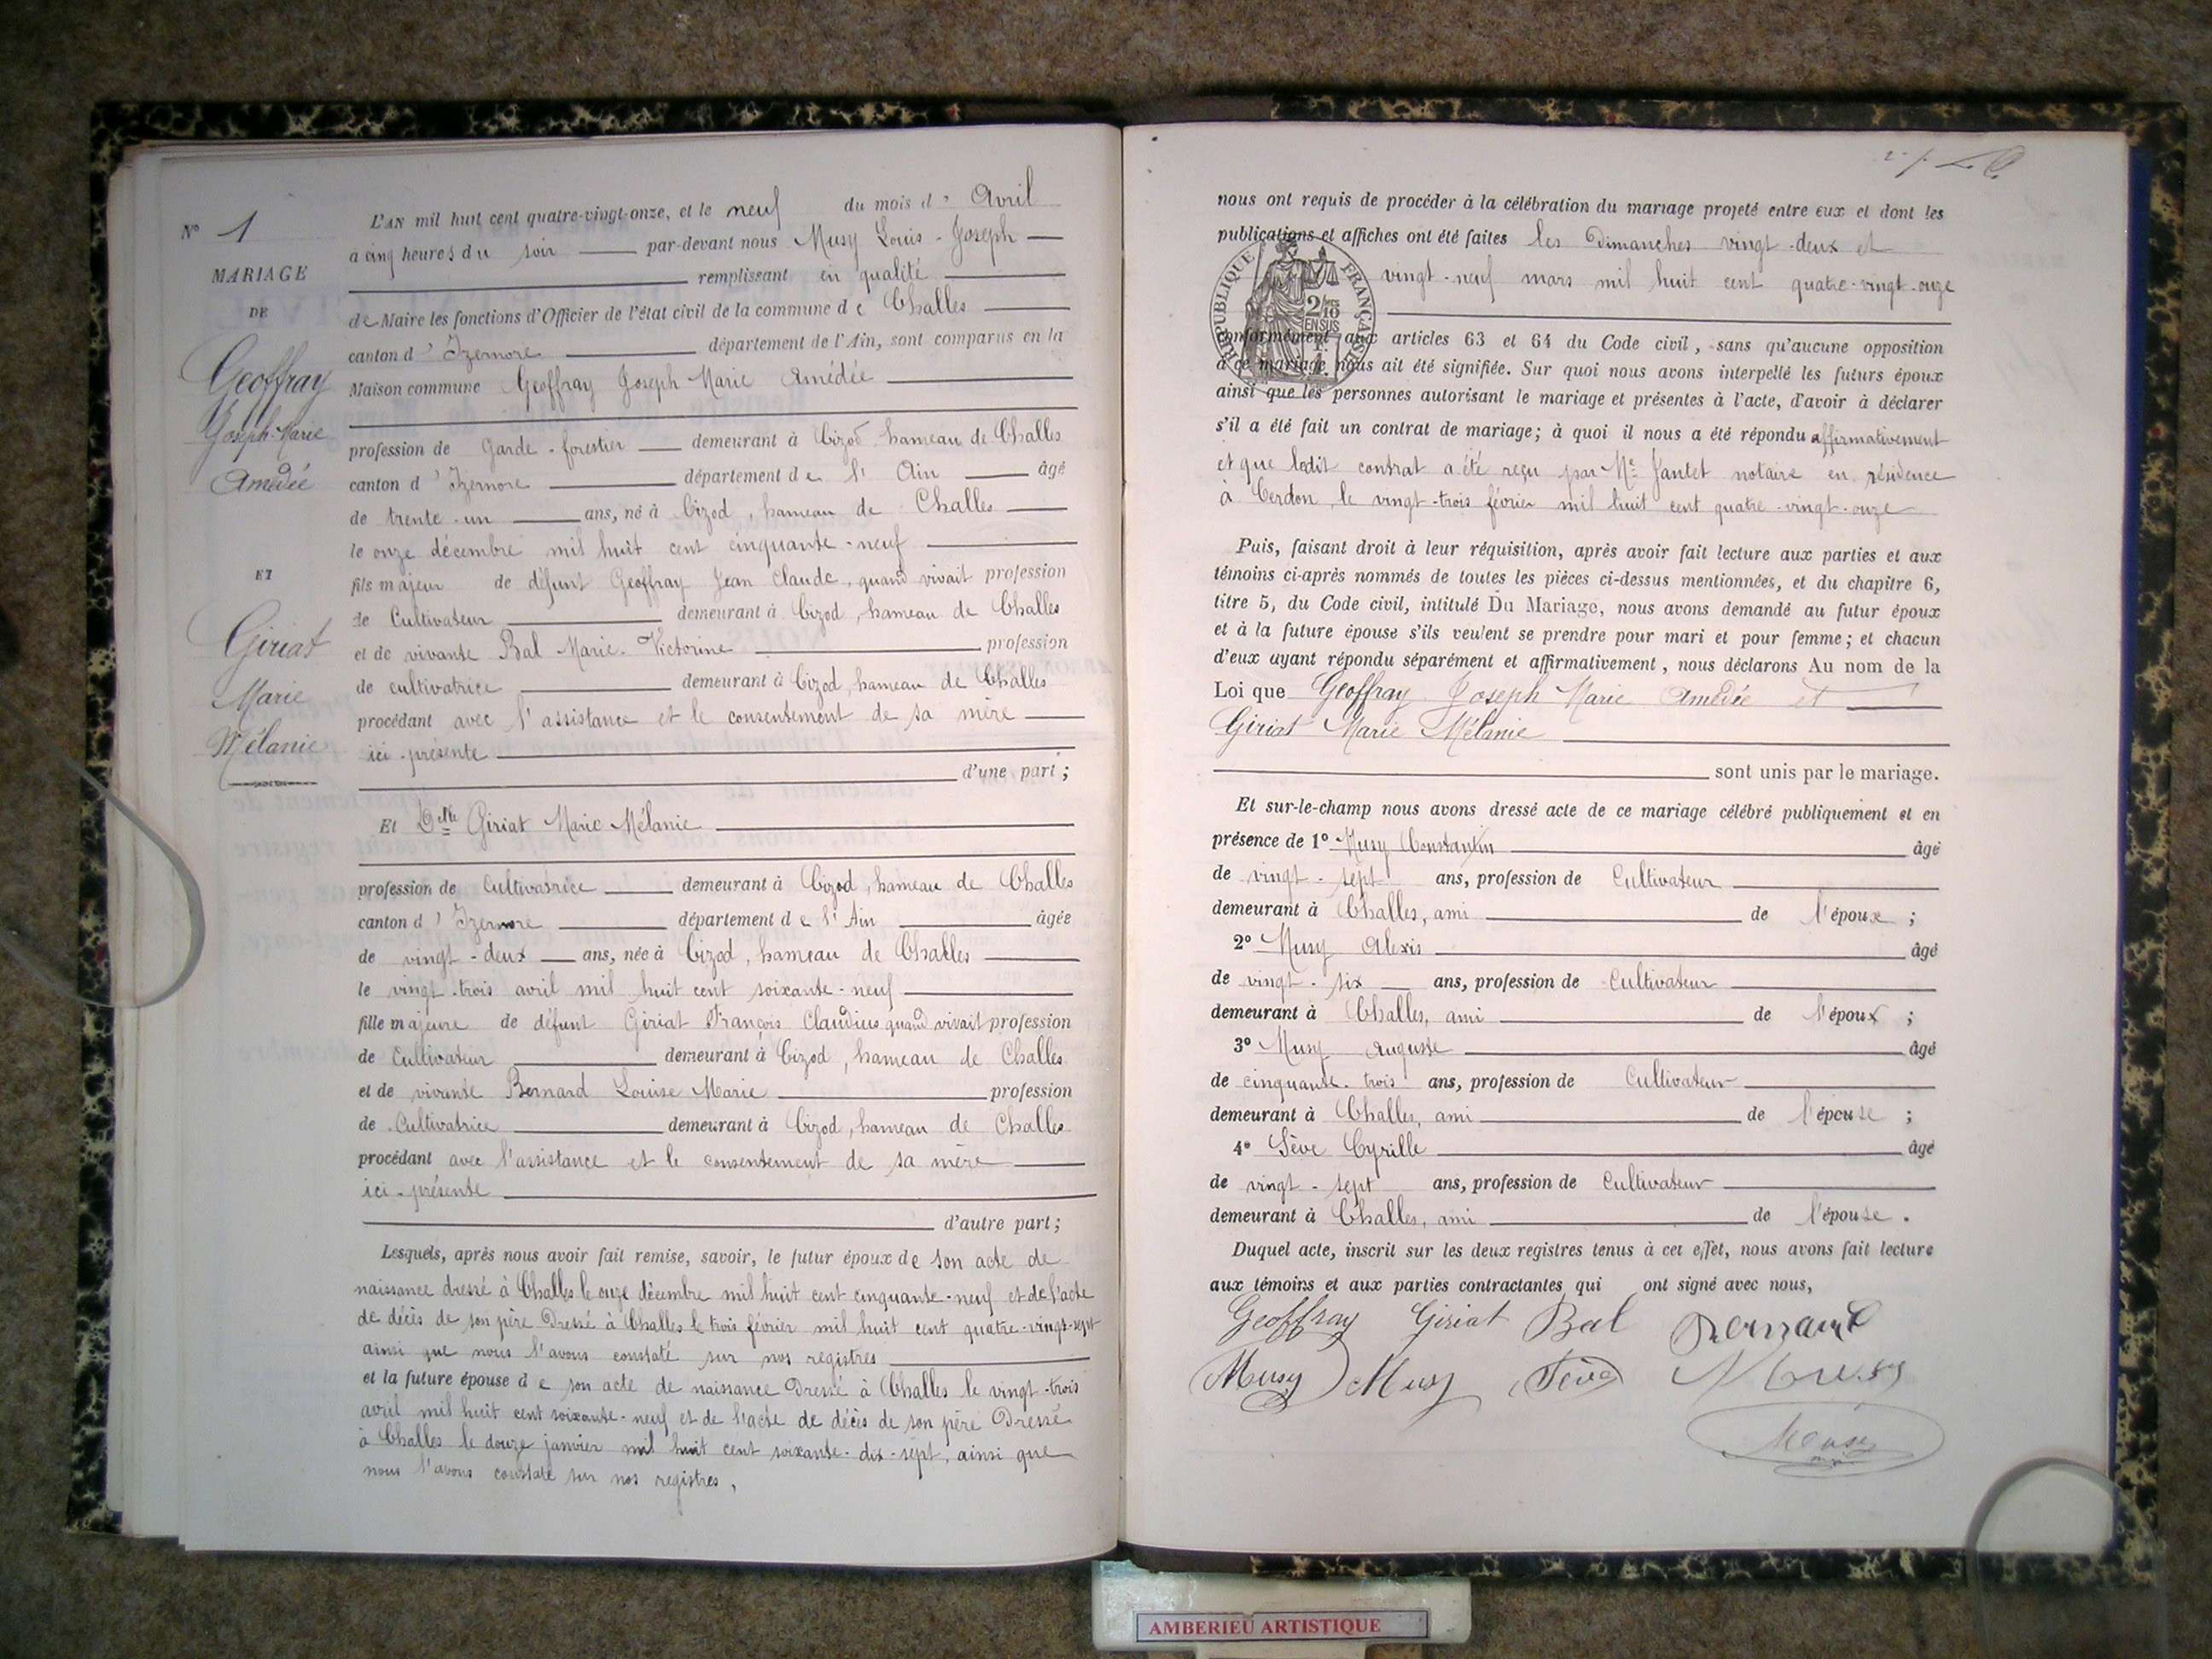 N° 1
MARIAGE
DE
Geoffray
Joseph-Marie
Amédée
ET
Giriat
Marie
Mélanie
L'AN mil huit cent quatre-vingt-onze, et le neuf du mois d' Avril
à cinq heures du soir par-devant nous Musy Louis-Joseph
remplissant en qualité
de Maire les fonctions d'Officier de l'état civil de la commune de Challes
canton d'Izernore département de l'Ain, sont comparus en la
Maison commune Geoffray Joseph Marie Amédée
profession de Garde-forestier demeurant à Cizod, hameau de Challes
canton d'Izernore département de l'Ain âgé
de trente-un ans, né à Cizod, hameau de Challes
le onze décembre mil huit cent cinquante-neuf
fils majeur de défunt Geoffray Jean Claude, quand vivait profession
de Cultivateur demeurant à Cizod, hameau de Challes
et de vivante Bal Marie-Victorine profession
de cultivatrice demeurant à Cizod, hameau de Challes
procédant avec l'assistance et le consentement de sa mère
ici-présente
d'une part;
Et Delle Giriat Marie Mélanie
profession de Cultivatrice demeurant à Cizod, hameau de Challes
canton d'Izernore département de l'Ain âgée
de vingt-deux ans, née à Cizod, hameau de Challes
le vingt-trois avril mil huit cent soixante-neuf
fille majeure de défunt Giriat François Claudius quand vivait profession
de Cultivateur demeurant à Cizod, hameau de Challes
et de vivante Bernard Louise Marie profession
de Cultivatrice demeurant à Cizod, hameau de Challes
procédant avec l'assistance et le consentement de sa mère
ici-présente
d'autre part;
Lesquels, après nous avoir fait remise, savoir, le futur époux de son acte de
naissance dressé à Challes le onze décembre mil huit cent cinquante-neuf et de l'acte
de décès de son père dressé à Challes le trois février mil huit cent quatre-vingt-sept
ainsi que nous l'avons constaté sur nos registres
et la future épouse de son acte de naissance dressé à Challes le vingt-trois
avril mil huit cent soixante-neuf et de l'acte de décès de son père dressé
à Challes le douze janvier mil huit cent soixante-dix-sept, ainsi que
nous l'avons constaté sur nos registres,
nous ont requis de procéder à la célébration du mariage projeté entre eux et dont les
publications et affiches ont été faites les Dimanches vingt-deux et
vingt-neuf mars mil huit cent quatre-vingt-onze
RÉPUBLIQUE FRANÇAISE
2/10
EN SUS
conformément aux articles 63 et 64 du Code civil, sans qu'aucune opposition
à ce mariage nous ait été signifiée. Sur quoi nous avons interpellé les futurs époux
ainsi que les personnes autorisant le mariage et présentes à l'acte, d'avoir à déclarer
s'il a été fait un contrat de mariage; à quoi il nous a été répondu affirmativement
et que ledit contrat a été reçu par Me Jantet notaire en résidence
à Cerdon, le vingt-trois février mil huit cent quatre-vingt-onze
Puis, faisant droit à leur réquisition, après avoir fait lecture aux parties et aux
témoins ci-après nommés de toutes les pièces ci-dessus mentionnées, et du chapitre 6,
titre 5, du Code civil, intitulé Du Mariage, nous avons demandé au futur époux
et à la future épouse s'ils veulent se prendre pour mari et pour femme; et chacun
d'eux ayant répondu séparément et affirmativement, nous déclarons Au nom de la
Loi que Geoffray Joseph Marie Amédée et
Giriat Marie Mélanie
sont unis par le mariage.
Et sur-le-champ nous avons dressé acte de ce mariage célébré publiquement et en
présence de 1° Musy Constantin âgé
de vingt-sept ans, profession de Cultivateur
demeurant à Challes, ami de l'époux ;
2° Musy Alexis âgé
de vingt-six ans, profession de Cultivateur
demeurant à Challes, ami de l'époux ;
3° Musy Auguste âgé
de cinquante-trois ans, profession de Cultivateur
demeurant à Challes, ami de l'épouse ;
4° Sève Cyrille âgé
de vingt-sept ans, profession de Cultivateur
demeurant à Challes, ami de l'épouse.
Duquel acte, inscrit sur les deux registres tenus à cet effet, nous avons fait lecture
aux témoins et aux parties contractantes qui ont signé avec nous,
Geoffray Giriat Bal Bernard
Musy Musy Sève Musy
Musy
AMBERIEU ARTISTIQUE